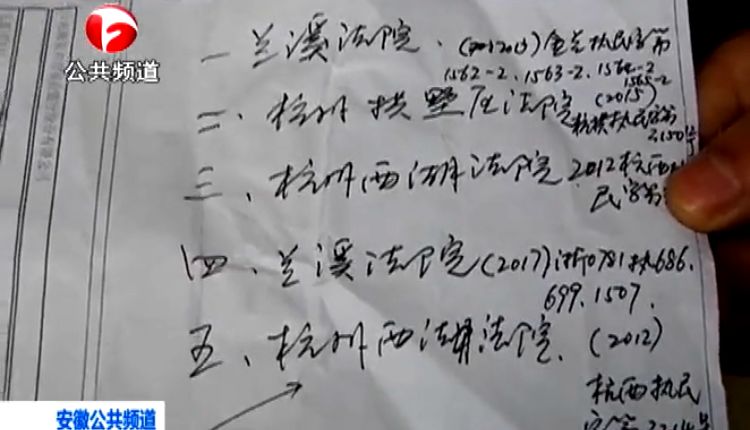 公共频道
一兰溪法院、(2015)金兰执民字第
1562-2、1563-2、1564-2
1565-2
二、杭州拱墅区法院 (2015)
杭拱执民字第
2150号
三、杭州西湖法院 2012杭西
民字第
四、兰溪法院(2017)浙0781执686、
699、1507、
五、杭州西湖法院、(2012)
杭西执民
字第
安徽公共频道